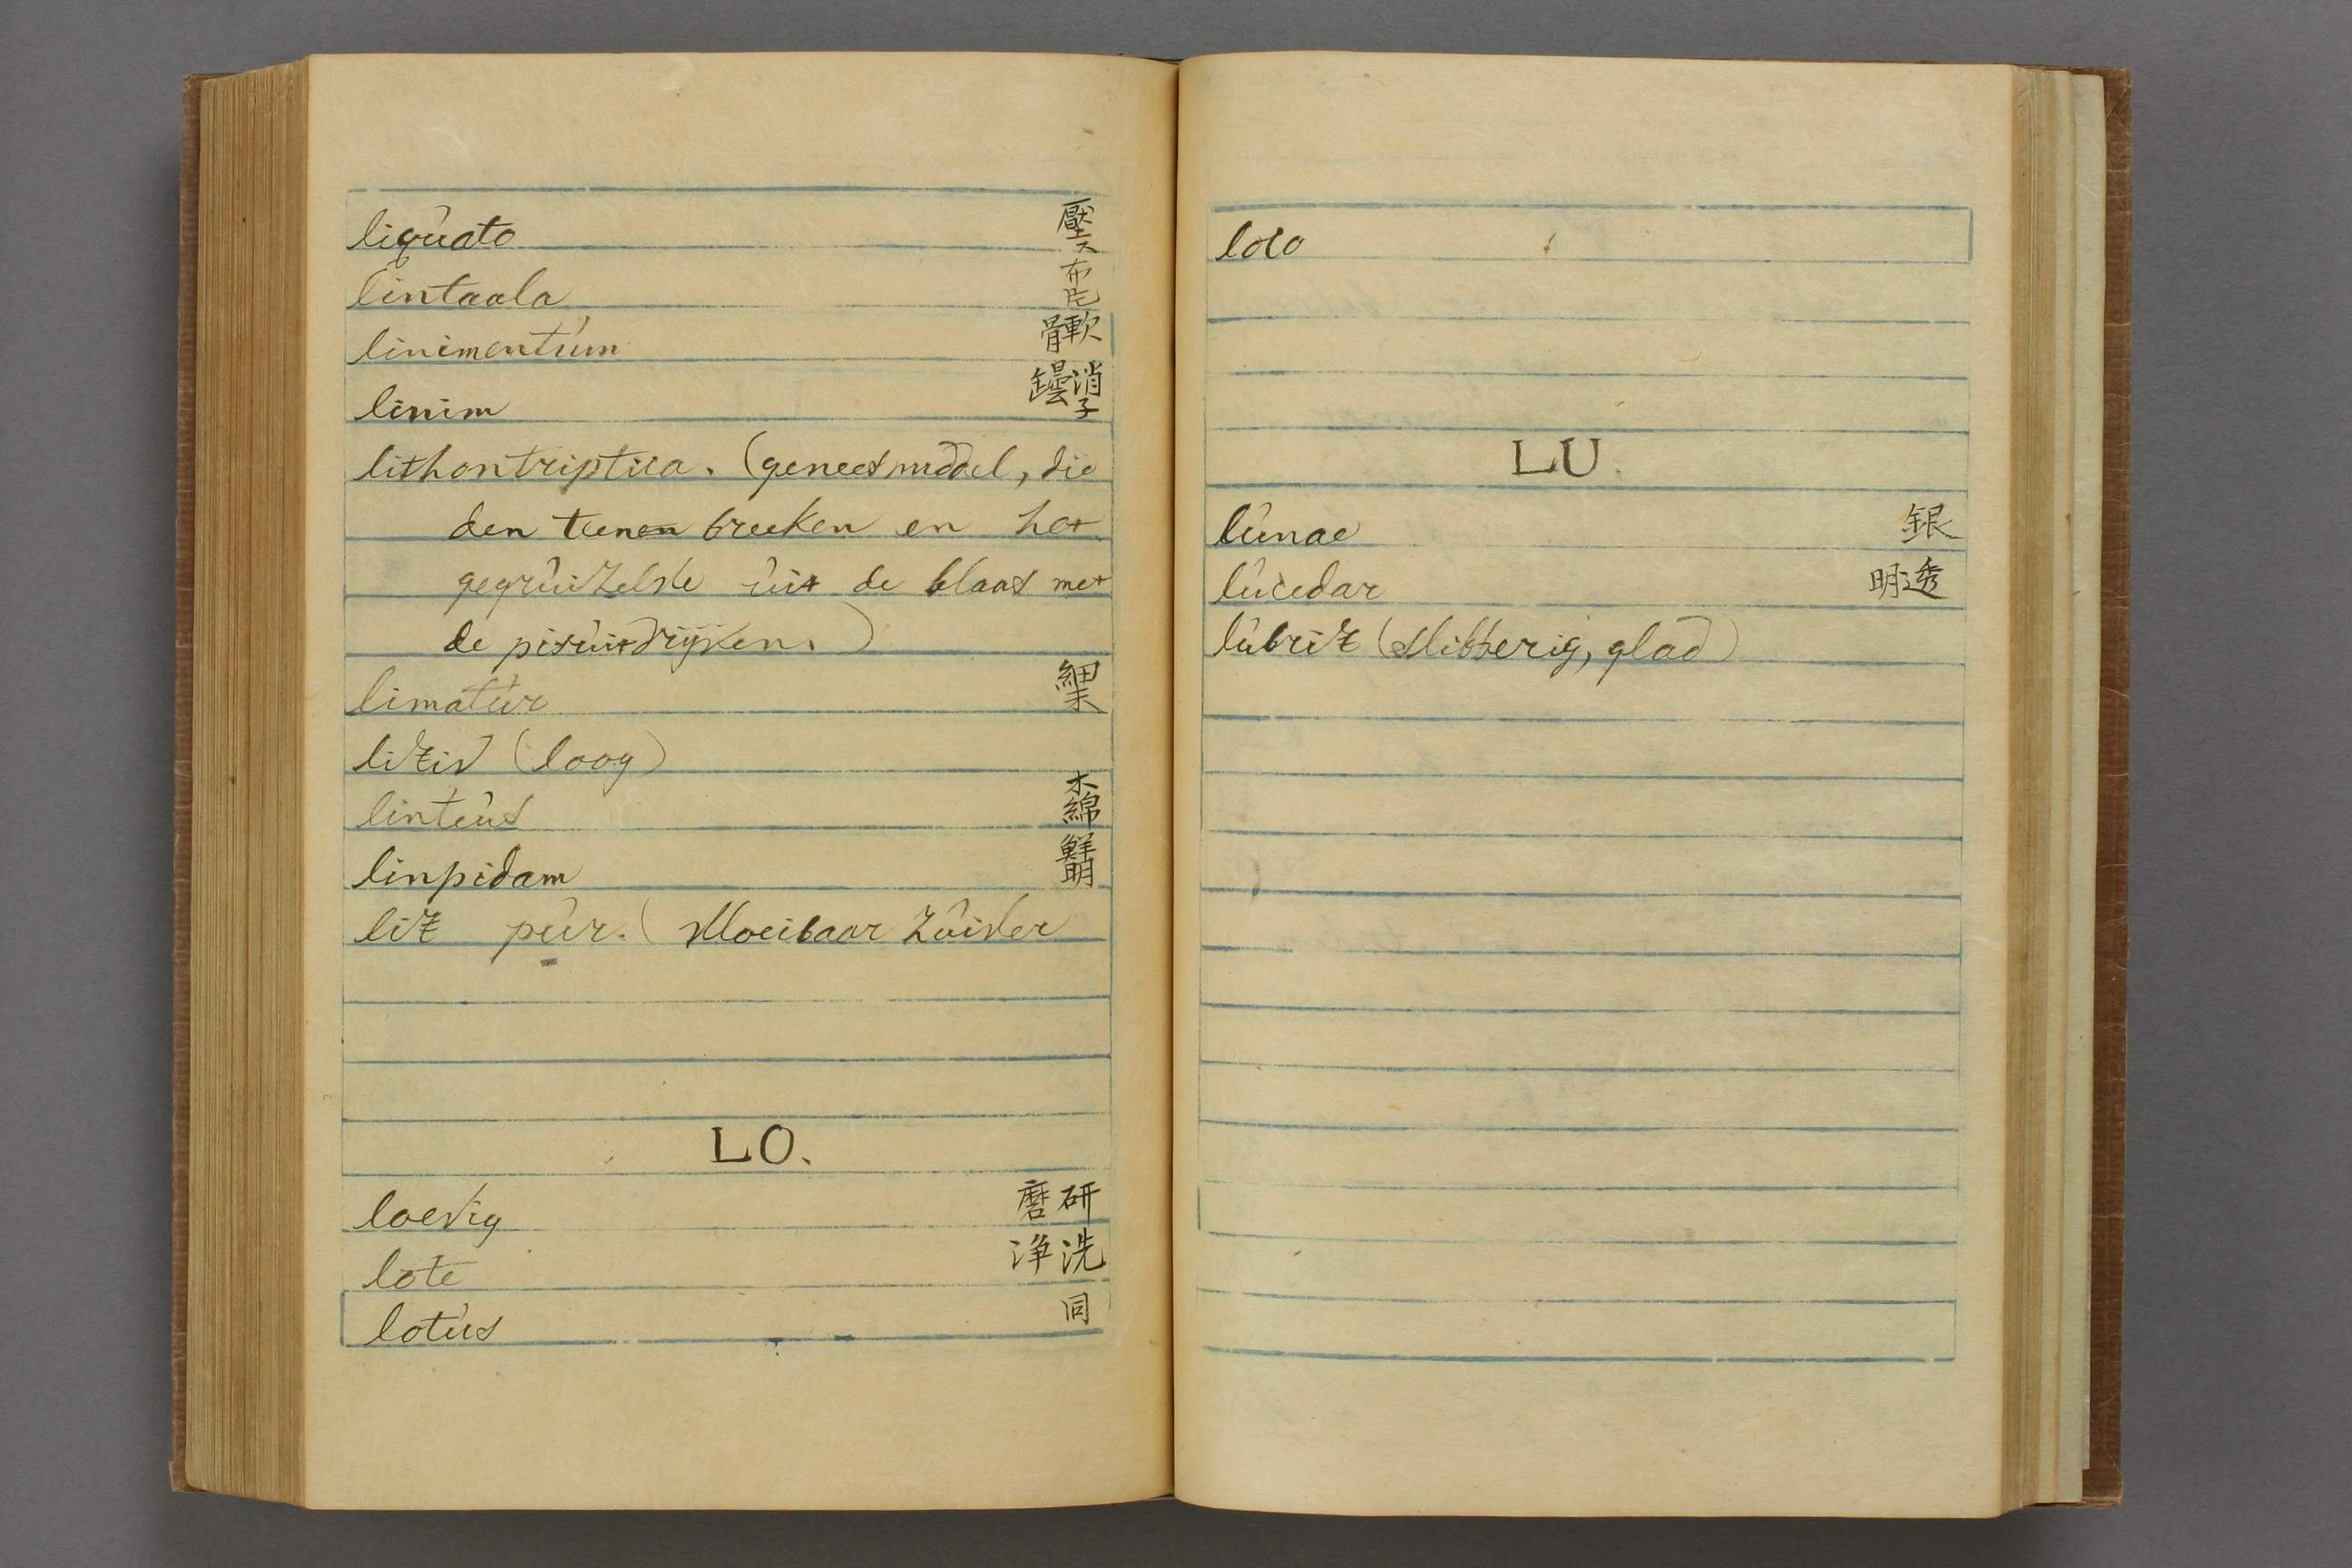 liqúato 壓ス
lintaala 布片
linimentúm 軟骨
linim 消子罎
lithontriptica. (geneesmiddel, die
den teenen breeken en het
gegrúizelste úit de blaas met
de pisúitdrijven.)
limatúr 細末
lixis (loog)
linteús 木綿
linpidam 鮮明
lix púr. (vloeibaar zúisler
LO.
loevig 研磨
lote 洗浄
lotús 同
loco
LU.
lúnae 銀
lúcedar 透明
lúbrix (slibberig, glad)